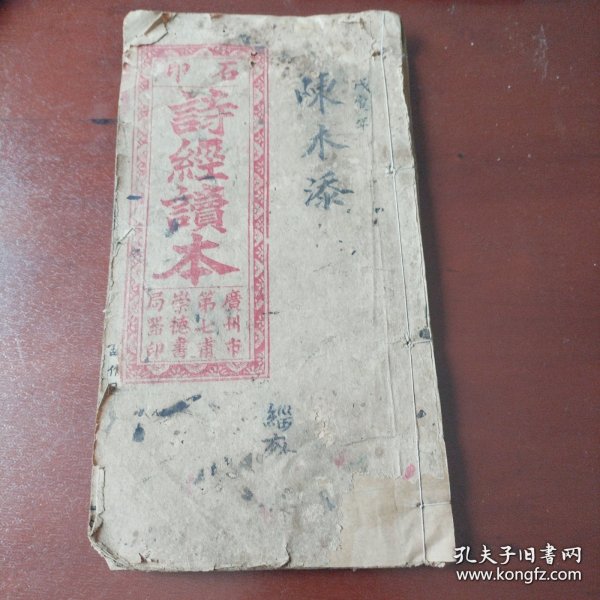 石印
詩經讀本
廣州市
第七甫
崇德書
局石印
陳木添
孔夫子旧书网
www.kongfz.com